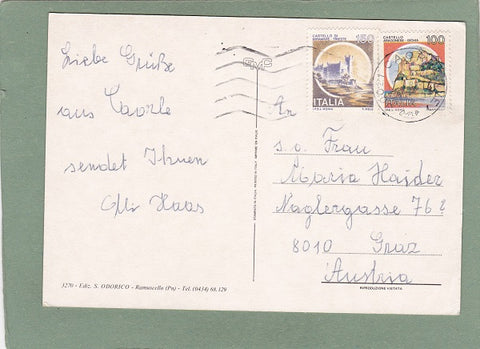 Liebe Grüße
aus Caorle
sendet Ihnen
Olli Haas
3270 - Ediz. S. ODORICO - Ramuscello (Pn) - Tel. (0434) 68.129
CASTELLO DI MIRAMARE - TRIESTE
150
ITALIA
CASTELLO ARAGONESE - ISCHIA
100
An
s.g. Frau
Maria Haider
Naglergasse 76
8010 Graz
Austria
RIPRODUZIONE VIETATA